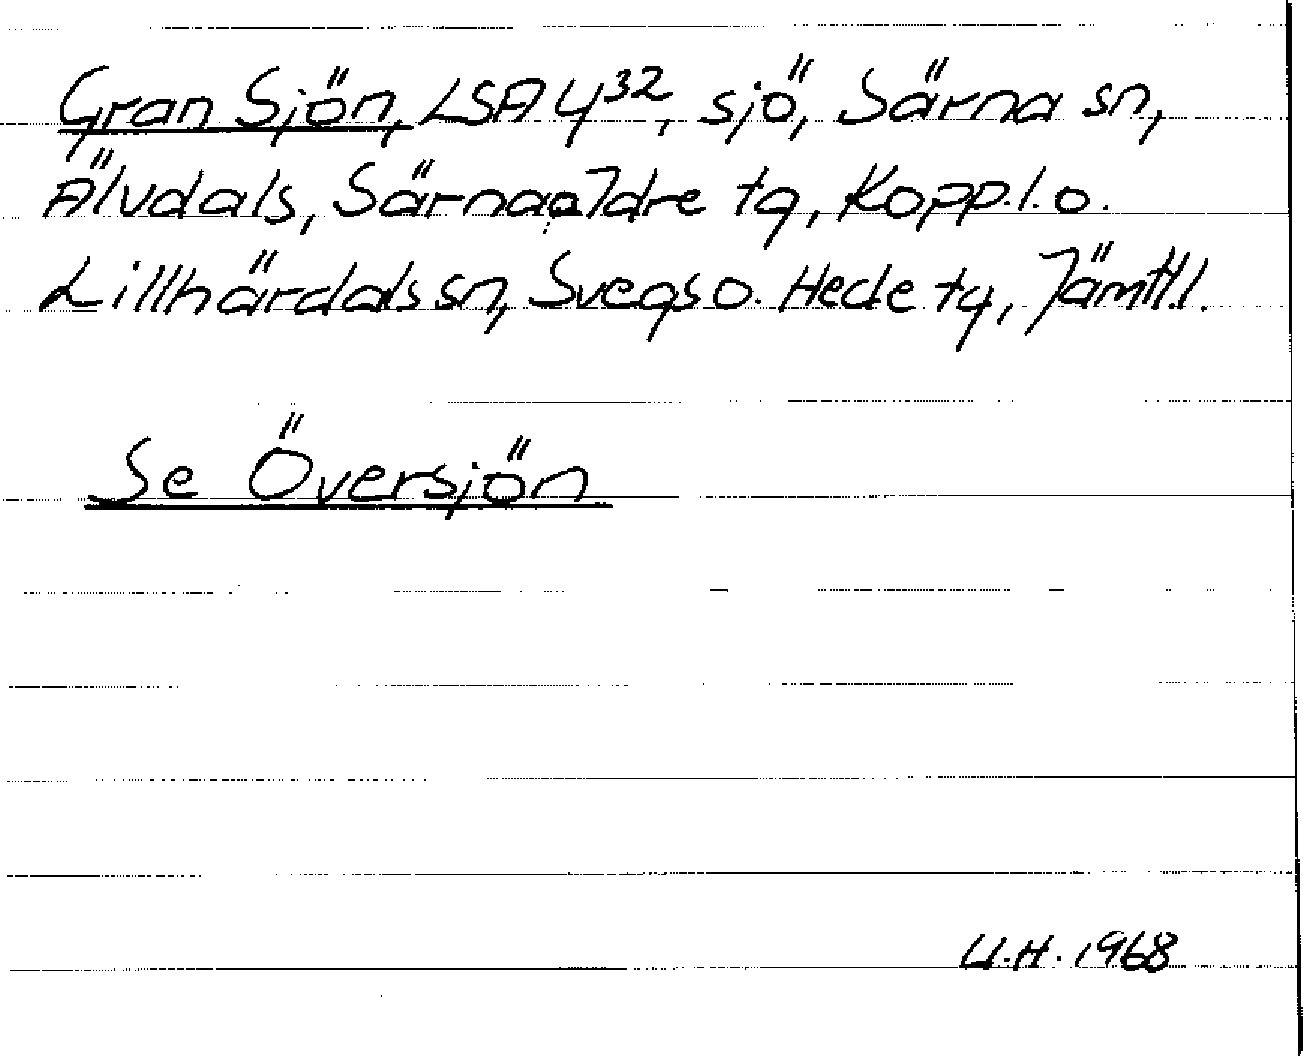 Gran Sjön, LSA Y³², sjö, Särna sn,
Älvdals, Särna o Idre tg, Kopp. l. o.
Lillhärdals sn, Svegs o. Hede tg, Jämtl. l.
Se Översjön
U.H. 1968